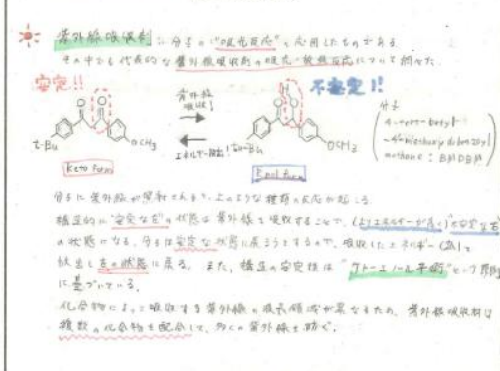 紫外線吸収剤に分子の"吸光反応"を応用したものがある
その中でも代表的な紫外線吸収剤の吸光・放熱反応について調べた。
安定!!
不安定!!
紫外線
吸収!
エネルギー放出!
t-Bu
OCH3
t-Bu
OCH3
Keto form
Enol form
分子
4-tert-butyl
-4'-methoxy dibenzoyl
methane : BMDBM
分子に紫外線が照射されると、上のような種類の反応が起こる
構造的に"安定な左"の状態は紫外線を吸収することで、(よりエネルギーが高い)"不安定な右"
の状態になる。分子は安定な状態に戻ろうとするので、吸収したエネルギーを
放出し左の状態に戻る。また、構造の安定性は"ケト-エノール平衡"という
に基づいている。
化合物によって吸収する紫外線の波長領域が異なるため、紫外線吸収剤は
複数の化合物を配合して、多くの紫外線を防ぐ。